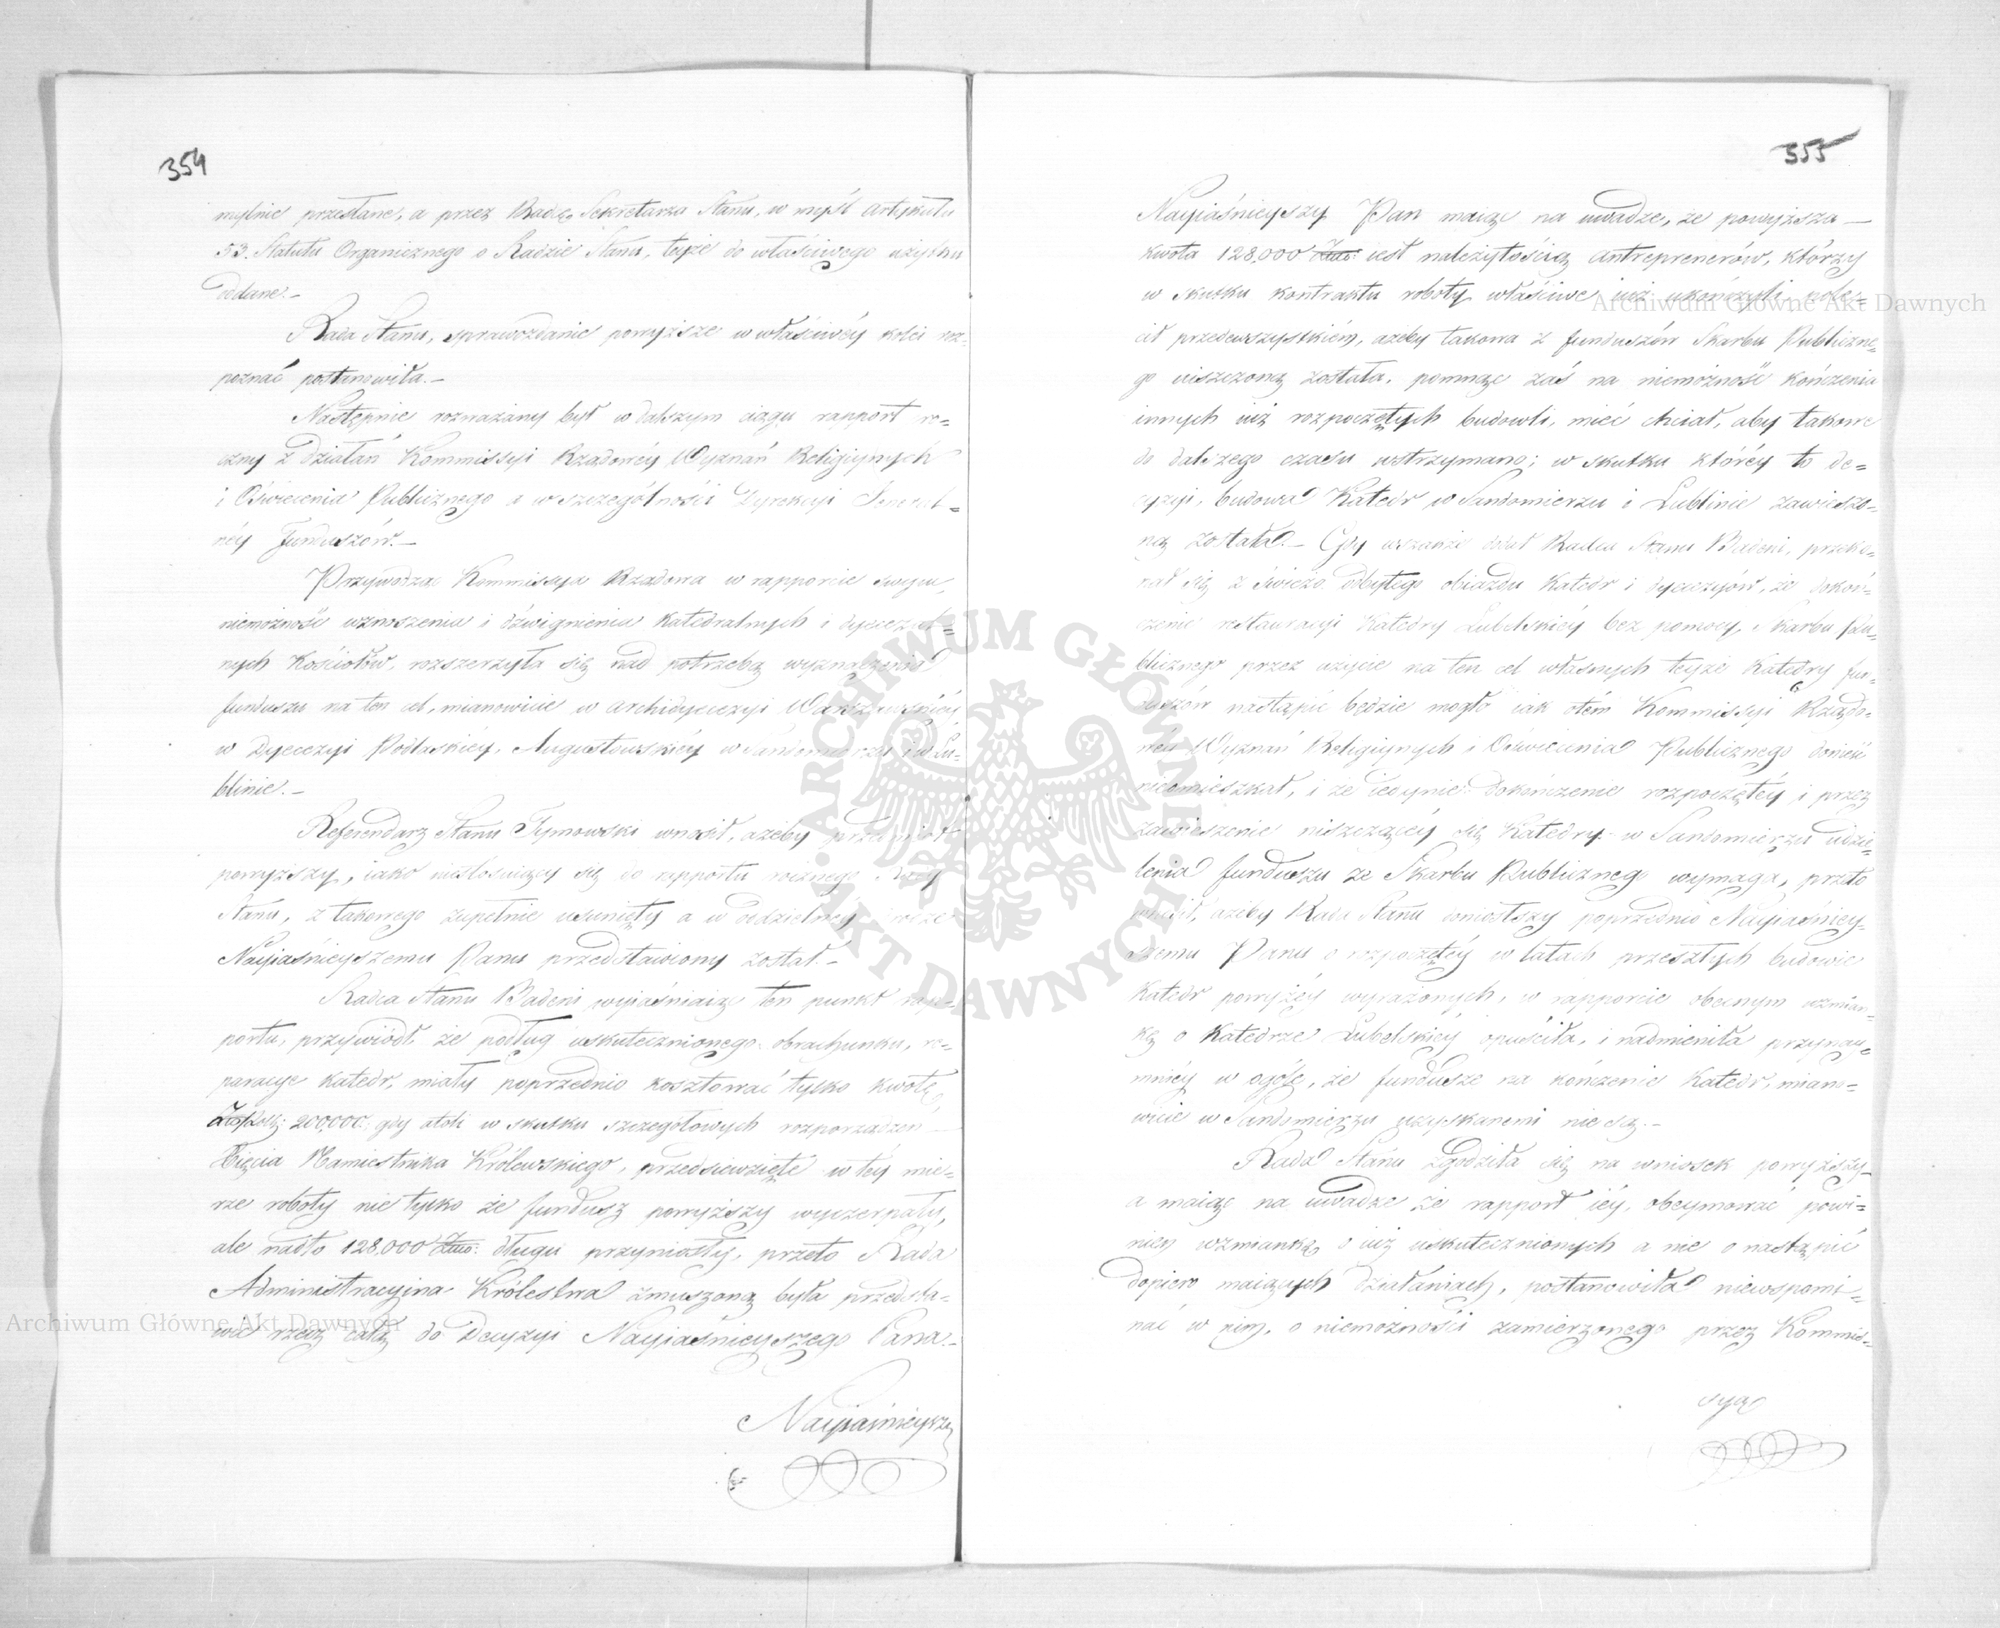 354
mylnie przesłane, a przez Radcę Sekretarza Stanu, w myśl Artykułu
53. Statutu Organicznego o Radzie Stanu, teyże do właściwego użytku
oddane.—
Rada Stanu, sprawozdanie powyższe w właściwéy kolei roz=
poznać postanowiła.—
Następnie rozważany był w dalszym ciągu rapport ro=
czny z działań Kommissyi Rządowéy Wyznań Religiynych
i Oświecenia Publicznego a w szczególności Dyrekcyi General=
néy Funduszów.—
Przywodząc Kommissya Rządowa w rapporcie swym,
niemożność wznoszenia i dźwignienia Katedralnych i dyecezal=
nych Kościołów, rozszerzyła się nad potrzebą wyznaczenia
funduszu na ten cel, mianowicie w archidyecezyi Warszawskiéy,
w Dyecezyi Podlaskiéy, Augustowskiéy w Sandomierzu i w Lu=
blinie.—
Referendarz Stanu Tymowski wnosił, ażeby przedmiot
powyższy, iako niestosuiący się do rapportu rocznego Rady
Stanu, z takowego zupełnie usunięty a w oddzielney drodze
Nayiaśnieyszemu Panu przedstawiony został.—
Radca Stanu Badeni wyiaśniaiąc ten punkt rap=
portu, przywiódł, że podług uskutecznionego obrachunku, re=
paracye Katedr, miały poprzednio kosztować tylko kwotę
Złop: 200,000. gdy atoli w skutku szczegółowych rozporządzeń
Xięcia Namiestnika Królewskiego, przedsiewzięte w téy mie=
rze roboty nie tylko że fundusz powyższy wyczerpały,
ale nadto 128,000 długu przyniosły, przeto Rada
Administracyina Królestwa zmuszoną była przedsta=
wić rzecz całą do Decyzyi Nayiaśnieyszego Pana.—
Nayiaśnieyszy
355
Nayiaśnieyszy Pan maiąc na uwadze, że powyższa
kwota 128,000 iest należytością Antreprenerów, którzy
w skutku kontraktu roboty właściwe iuż ukończyli, pole=
cił przedewszystkiém, ażeby takowa z funduszów Skarbu Publiczne=
go uiszczoną została, pomnąc zaś na niemożność kończenia
innych iuż rozpoczętych budowli, mieć chciał, aby takowe
do dalszego czasu wstrzymano; w skutku któréy to de=
cyzyi, budowa Katedr w Sandomierzu i Lublinie zawieszo=
ną została.— Gdy wszakże Radca Stanu Badeni, przeko=
nał się z świeżo odbytego obiazdu Katedr i dyecezyów, że dokoń=
czenie restauracyi Katedry Lubelskiéy bez pomocy Skarbu Pu=
blicznego przez użycie na ten cel własnych teyże Katedry fun=
duszów nastąpić będzie mogło iak o tém Kommissyi Rządo=
wéy Wyznań Religiynych i Oświecenia Publicznego donieść
nieomieszkał, i że iedynie dokończenie rozpoczętéy i przez
zawieszenie niszczącéy się Katedry w Sandomierzu udzie=
lenia funduszu ze Skarbu Publicznego wymaga, przeto
wnosił, ażeby Rada Stanu doniosłszy poprzednio Nayiaśniey=
szemu Panu o rozpoczętéy w latach przeszłych budowie
Katedr powyżéy wyrażonych, w rapporcie obecnym wzmian=
kę o Katedrze Lubelskiéy opuściła, i nadmieniła przynay=
mniéy w ogóle, że fundusze na kończenie Katedr, miano=
wicie w Sandomierzu uzyskanemi nie są.—
Rada Stanu zgodziła się na wniosek powyższy
a maiąc na uwadze że rapport iéy, obeymować powi=
nien wzmiankę o iuż uskutecznionych a nie o nastąpić
dopiero maiących działaniach, postanowiła niewspomi=
nać w nim, o niemożności zamierzonego przez Kommis=
syą
Archiwum Główne Akt Dawnych
Archiwum Główne Akt Dawnych
ARCHIWUM GŁÓWNE
AKT DAWNYCH